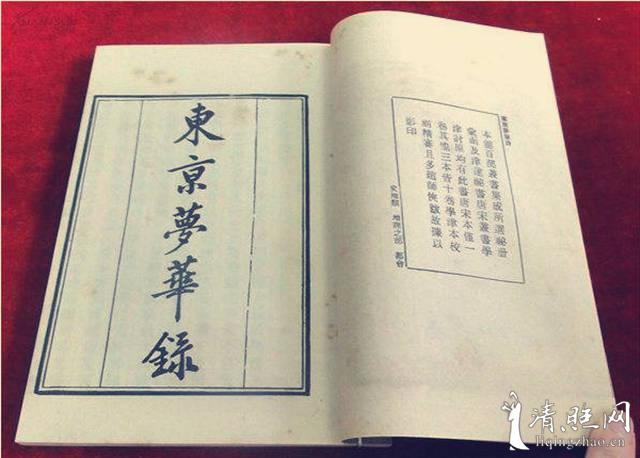 本館百部叢書集成所選祕冊
彙函及津逮祕書唐宋叢書學
津討原均有此書唐宋本僅一
卷其他三本皆十卷學津本校
精審且多趙師俠跋故據以
影印
史地類 地理之部 都會
東京夢華錄
清旺网
liqingzhao.cn